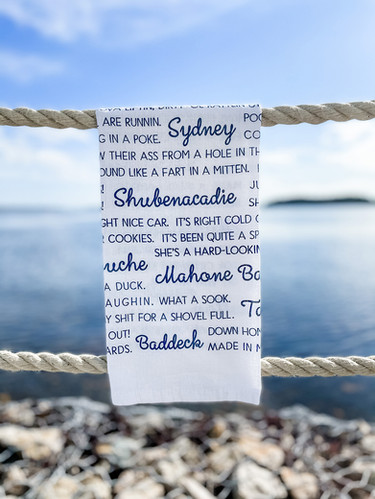 ARE RUNNIN. Sydney
G IN A POKE.
W THEIR ASS FROM A HOLE IN TH
OUND LIKE A FART IN A MITTEN.
Shubenacadie
GHT NICE CAR. IT'S RIGHT COLD
COOKIES. IT'S BEEN QUITE A SP
SHE'S A HARD-LOOKIN
uche
Mahone Ba
A DUCK.
AUGHIN. WHAT A SOOK.
Y SHIT FOR A SHOVEL FULL.
OUT!
ARDS. Baddeck
DOWN HOM
MADE IN